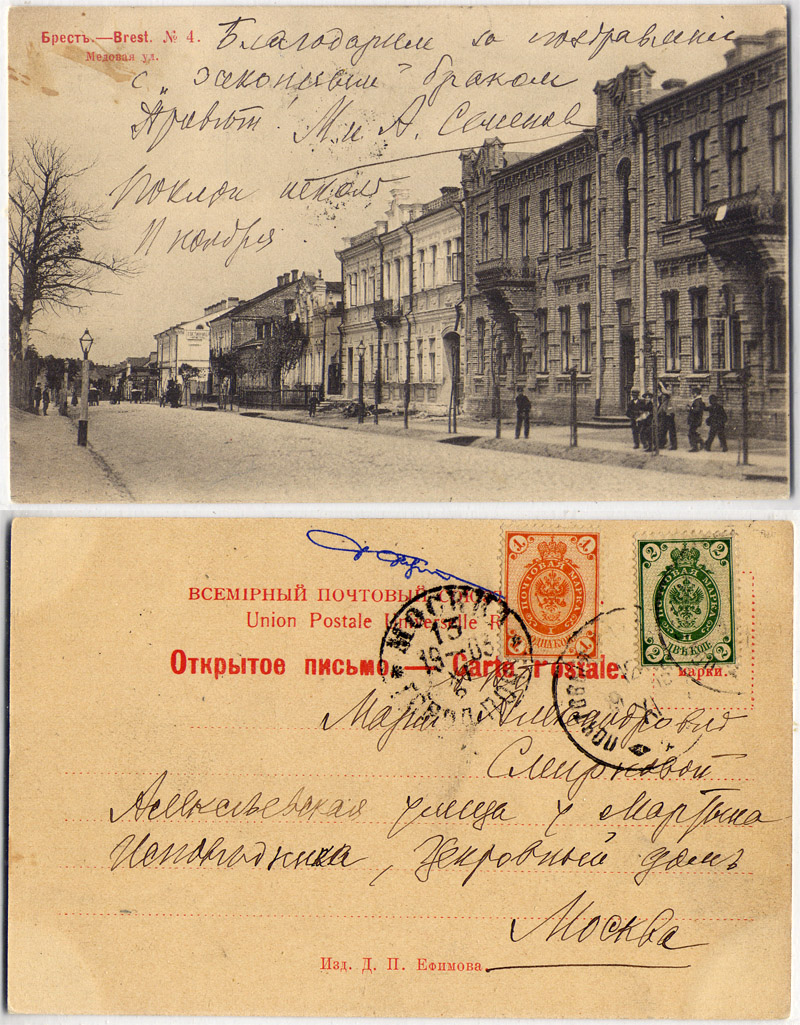 Брестъ.—Brest. № 4.
Медовая ул.
Благодарим за поздравление
с „законным" браком
Привет! М. и А. Семенов
Поклон
11 ноября.
ВСЕМІРНЫЙ ПОЧТОВЫЙ СОЮЗ
Union Postale Universelle R
Открытое письмо.—Carte Postale.
марки.
1 1
ПОЧТОВАЯ МАРКА
1
ОДНА КОП.
1 1
2 2
ПОЧТОВАЯ МАРКА
ДВѢ КОП.
2 2
МОСКВА
13
Марии Александровне
Смирновой
Алексѣевская улица у Мартына
Исповѣдника, Церковный домъ
Москва
Изд. Д. П. Ефимова